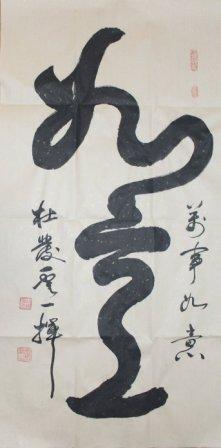 萬事如意
如意
杜發一揮